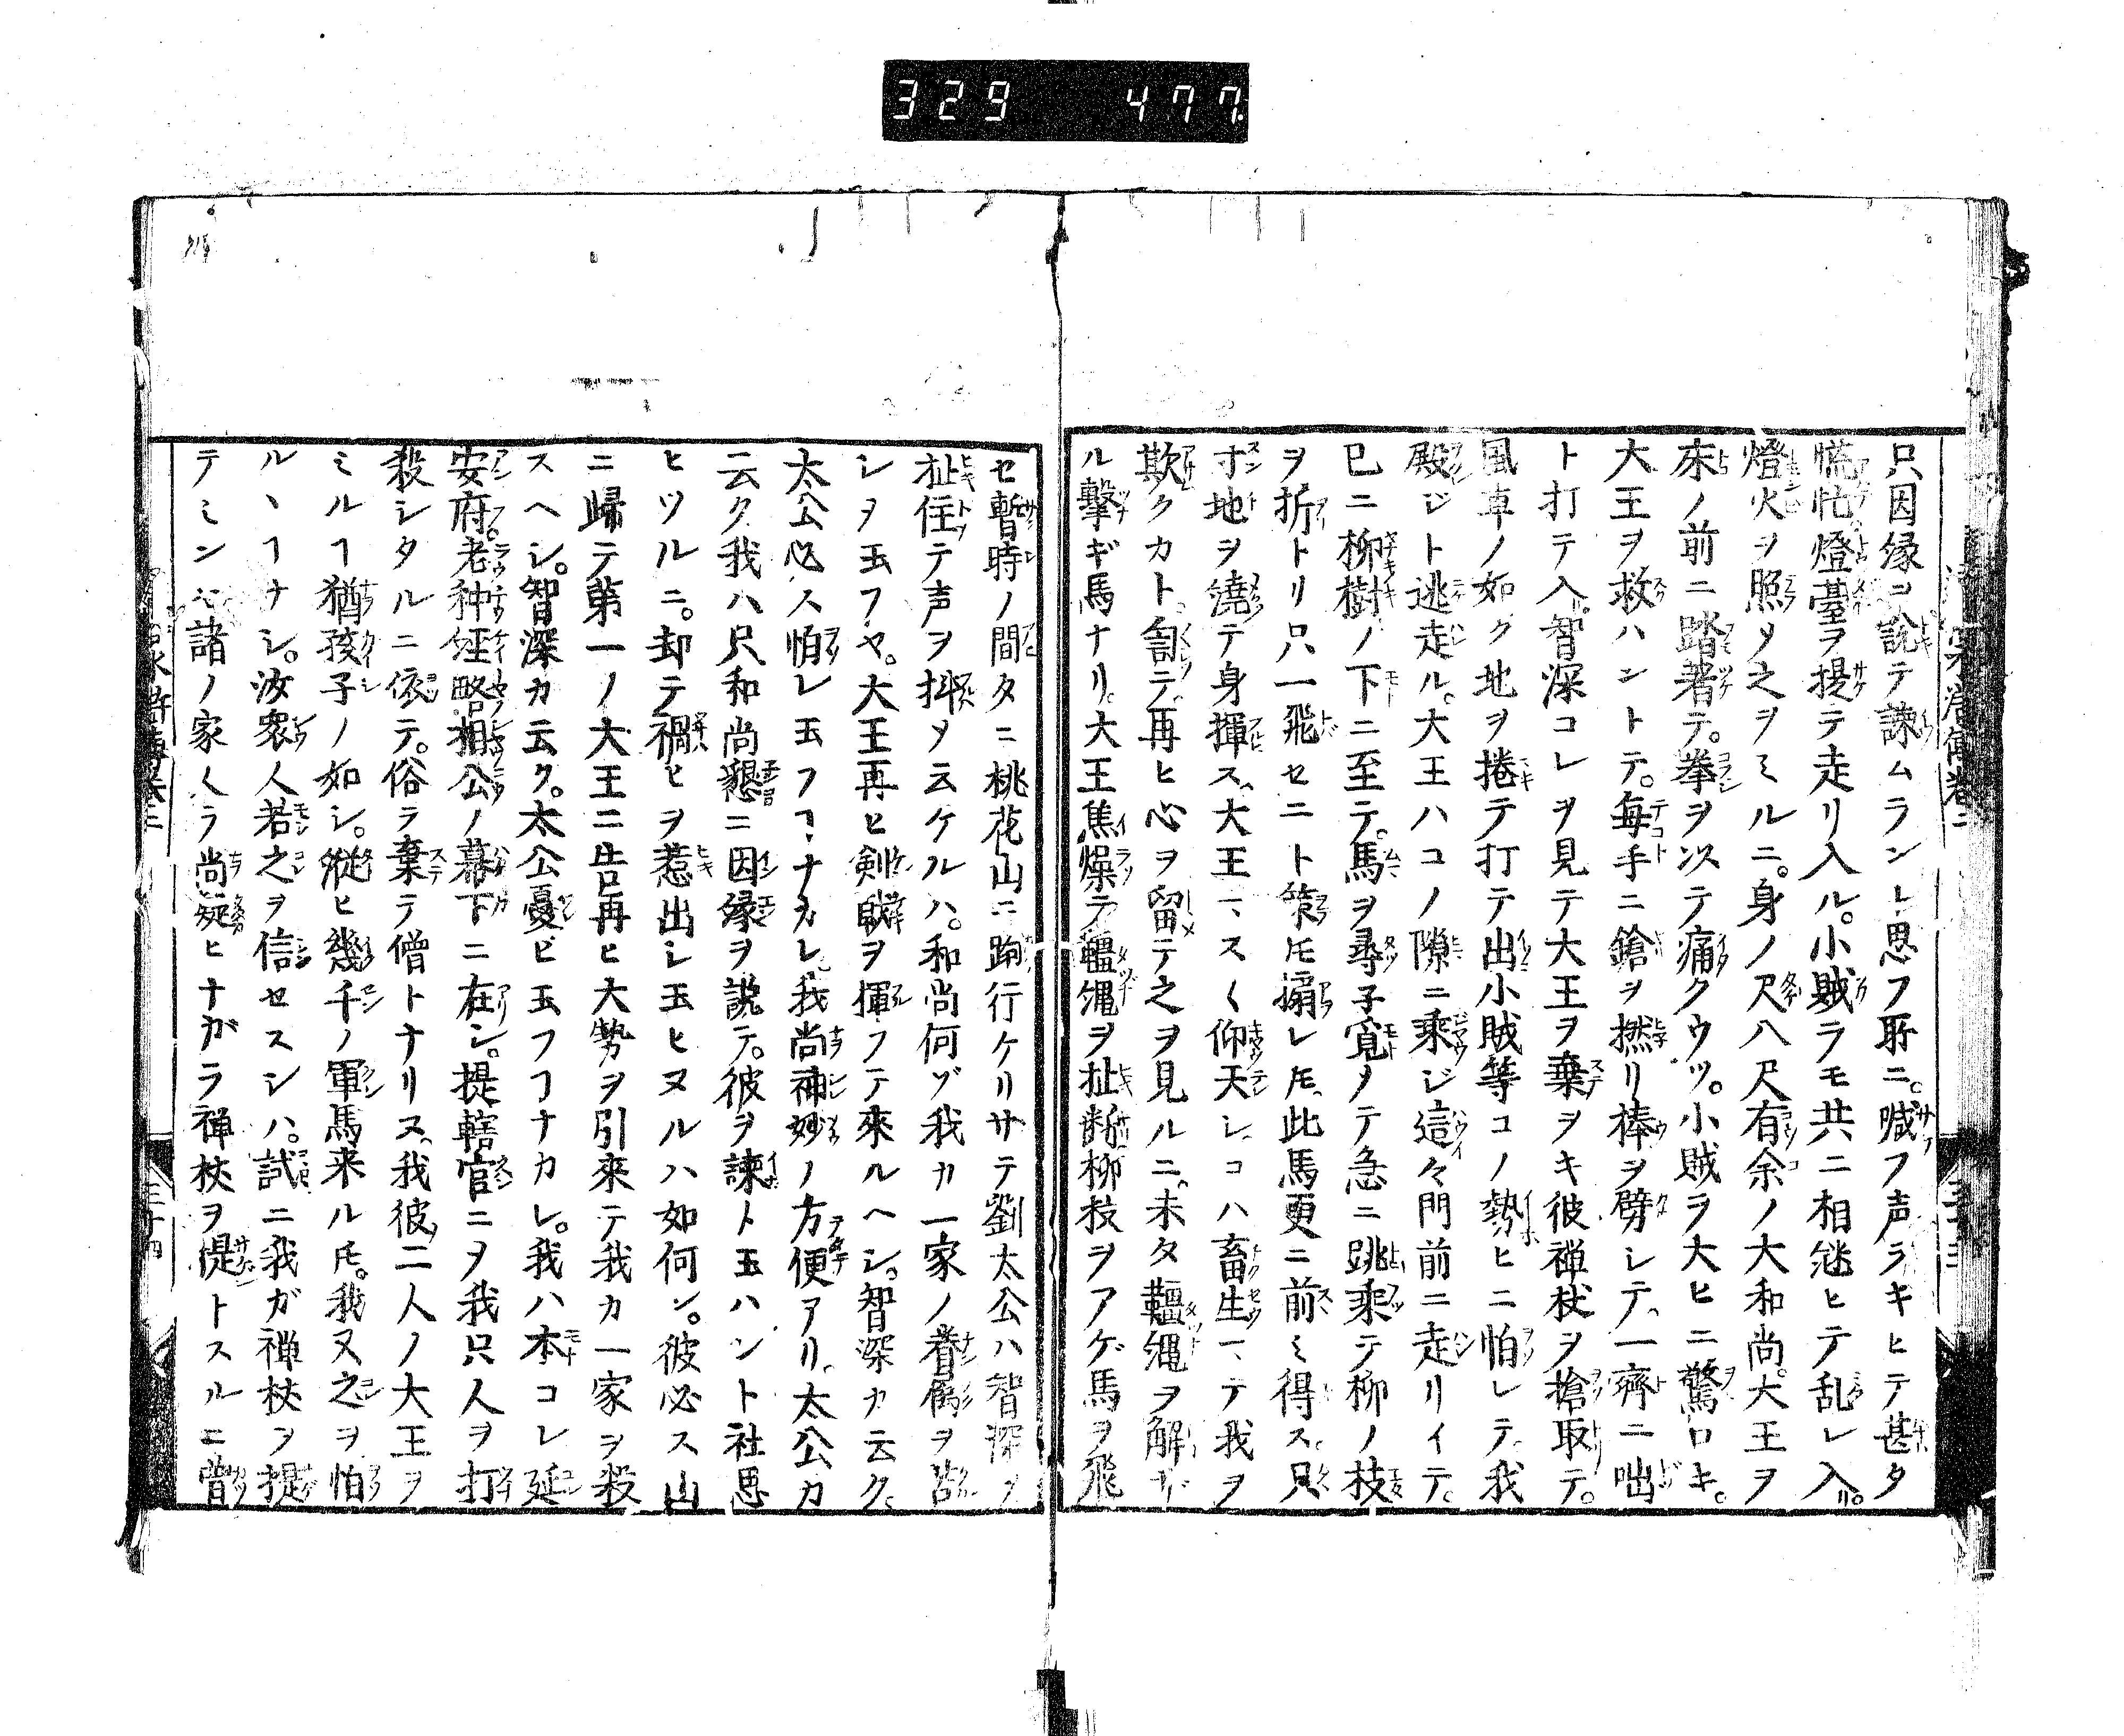 329 477
只因縁ヲ説テ諫ムランレ思フ所ニ。喊フ声ラキヒテ甚タ
慌忙燈臺ヲ提テ走リ入ル。小賊ラモ共ニ相継ヒテ乱レ入リ。
燈火ヲ照メ之ヲミルニ。身ノ尺八尺有余ノ大和尚。大王ヲ
床ノ前ニ踏著テ。拳ヲ以テ痛クウツ。小賊ヲ大ヒニ驚ロキ。
大王ヲ救ハントテ。毎手ニ鎗ヲ撚リ棒ヲ劈レテ、一齊ニ咄
ト打テ入。智深コレヲ見テ大王ヲ棄ヲキ彼禅杖ヲ搶取テ。
風車ノ如ク地ヲ捲テ打テ出小賊等コノ勢ヒニ怕レテ。我
殿シト逃走ル。大王ハコノ隙ニ乘ジ這々門前ニ走リイテ。
已ニ柳樹ノ下ニ至テ。馬ヲ尋子覓メテ急ニ跳乘テ柳ノ枝
ヲ折トリ只一飛セニト策モ搧レ𪜈此馬更ニ前ミ得ス。只
寸地ヲ遶テ身揮ス、大王一、スく仰天シ。コハ畜生一、テ我ヲ
欺クカト。劄テ。再ヒ心ヲ留テ之ヲ見ルニ。未タ韁繩ヲ解ザ
ル撃ギ馬ナリ。大王焦燥テ韁繩ヲ扯断柳枝ヲアゲ馬ヲ飛
セ暫時ノ間タニ桃花山ニ跑行ケリサテ劉太公ハ智深ヲ
扯住テ声ヲ抖メ云ケルハ。和尚何ゾ我カ一家ノ眷属ヲ
シヲ玉フヤ。大王再ヒ剣戟ヲ揮フテ來ルヘシ。智深カ云ク。
太公必ス怕レ玉フヿナカレ我尚神妙ノ方便アリ。太公カ
云ク我ハ只和尚懇ニ因縁ヲ説テ。彼ヲ諫ト玉ハント社思
ヒツルニ。却テ禍ヒヲ惹出シ玉ヒヌルハ如何ン。彼必ス山
ニ歸テ第一ノ大王ニ告再ヒ大勢ヲ引來テ我カ一家ヲ殺
スヘシ。智深カ云ク。太公憂ヒ玉フヿナカレ。我ハ本コレ延
安府。老种経略相公ノ幕下ニ在シ。提轄官ニヲ我只人ヲ打
殺シタルニ依テ。俗ラ棄テ僧トナリヌ、我彼二人ノ大王ヲ
ミルヿ猶孩子ノ如シ。縦ヒ幾千ノ軍馬来ル𪜈。我又之ヲ怕
ルヽヿナシ。汝衆人若之ヲ信セスンハ。試ニ我ガ禅杖ヲ提
テミンハ諸ノ家くラ尚疑ヒナガラ禅杖ヲ提トスルニ曽